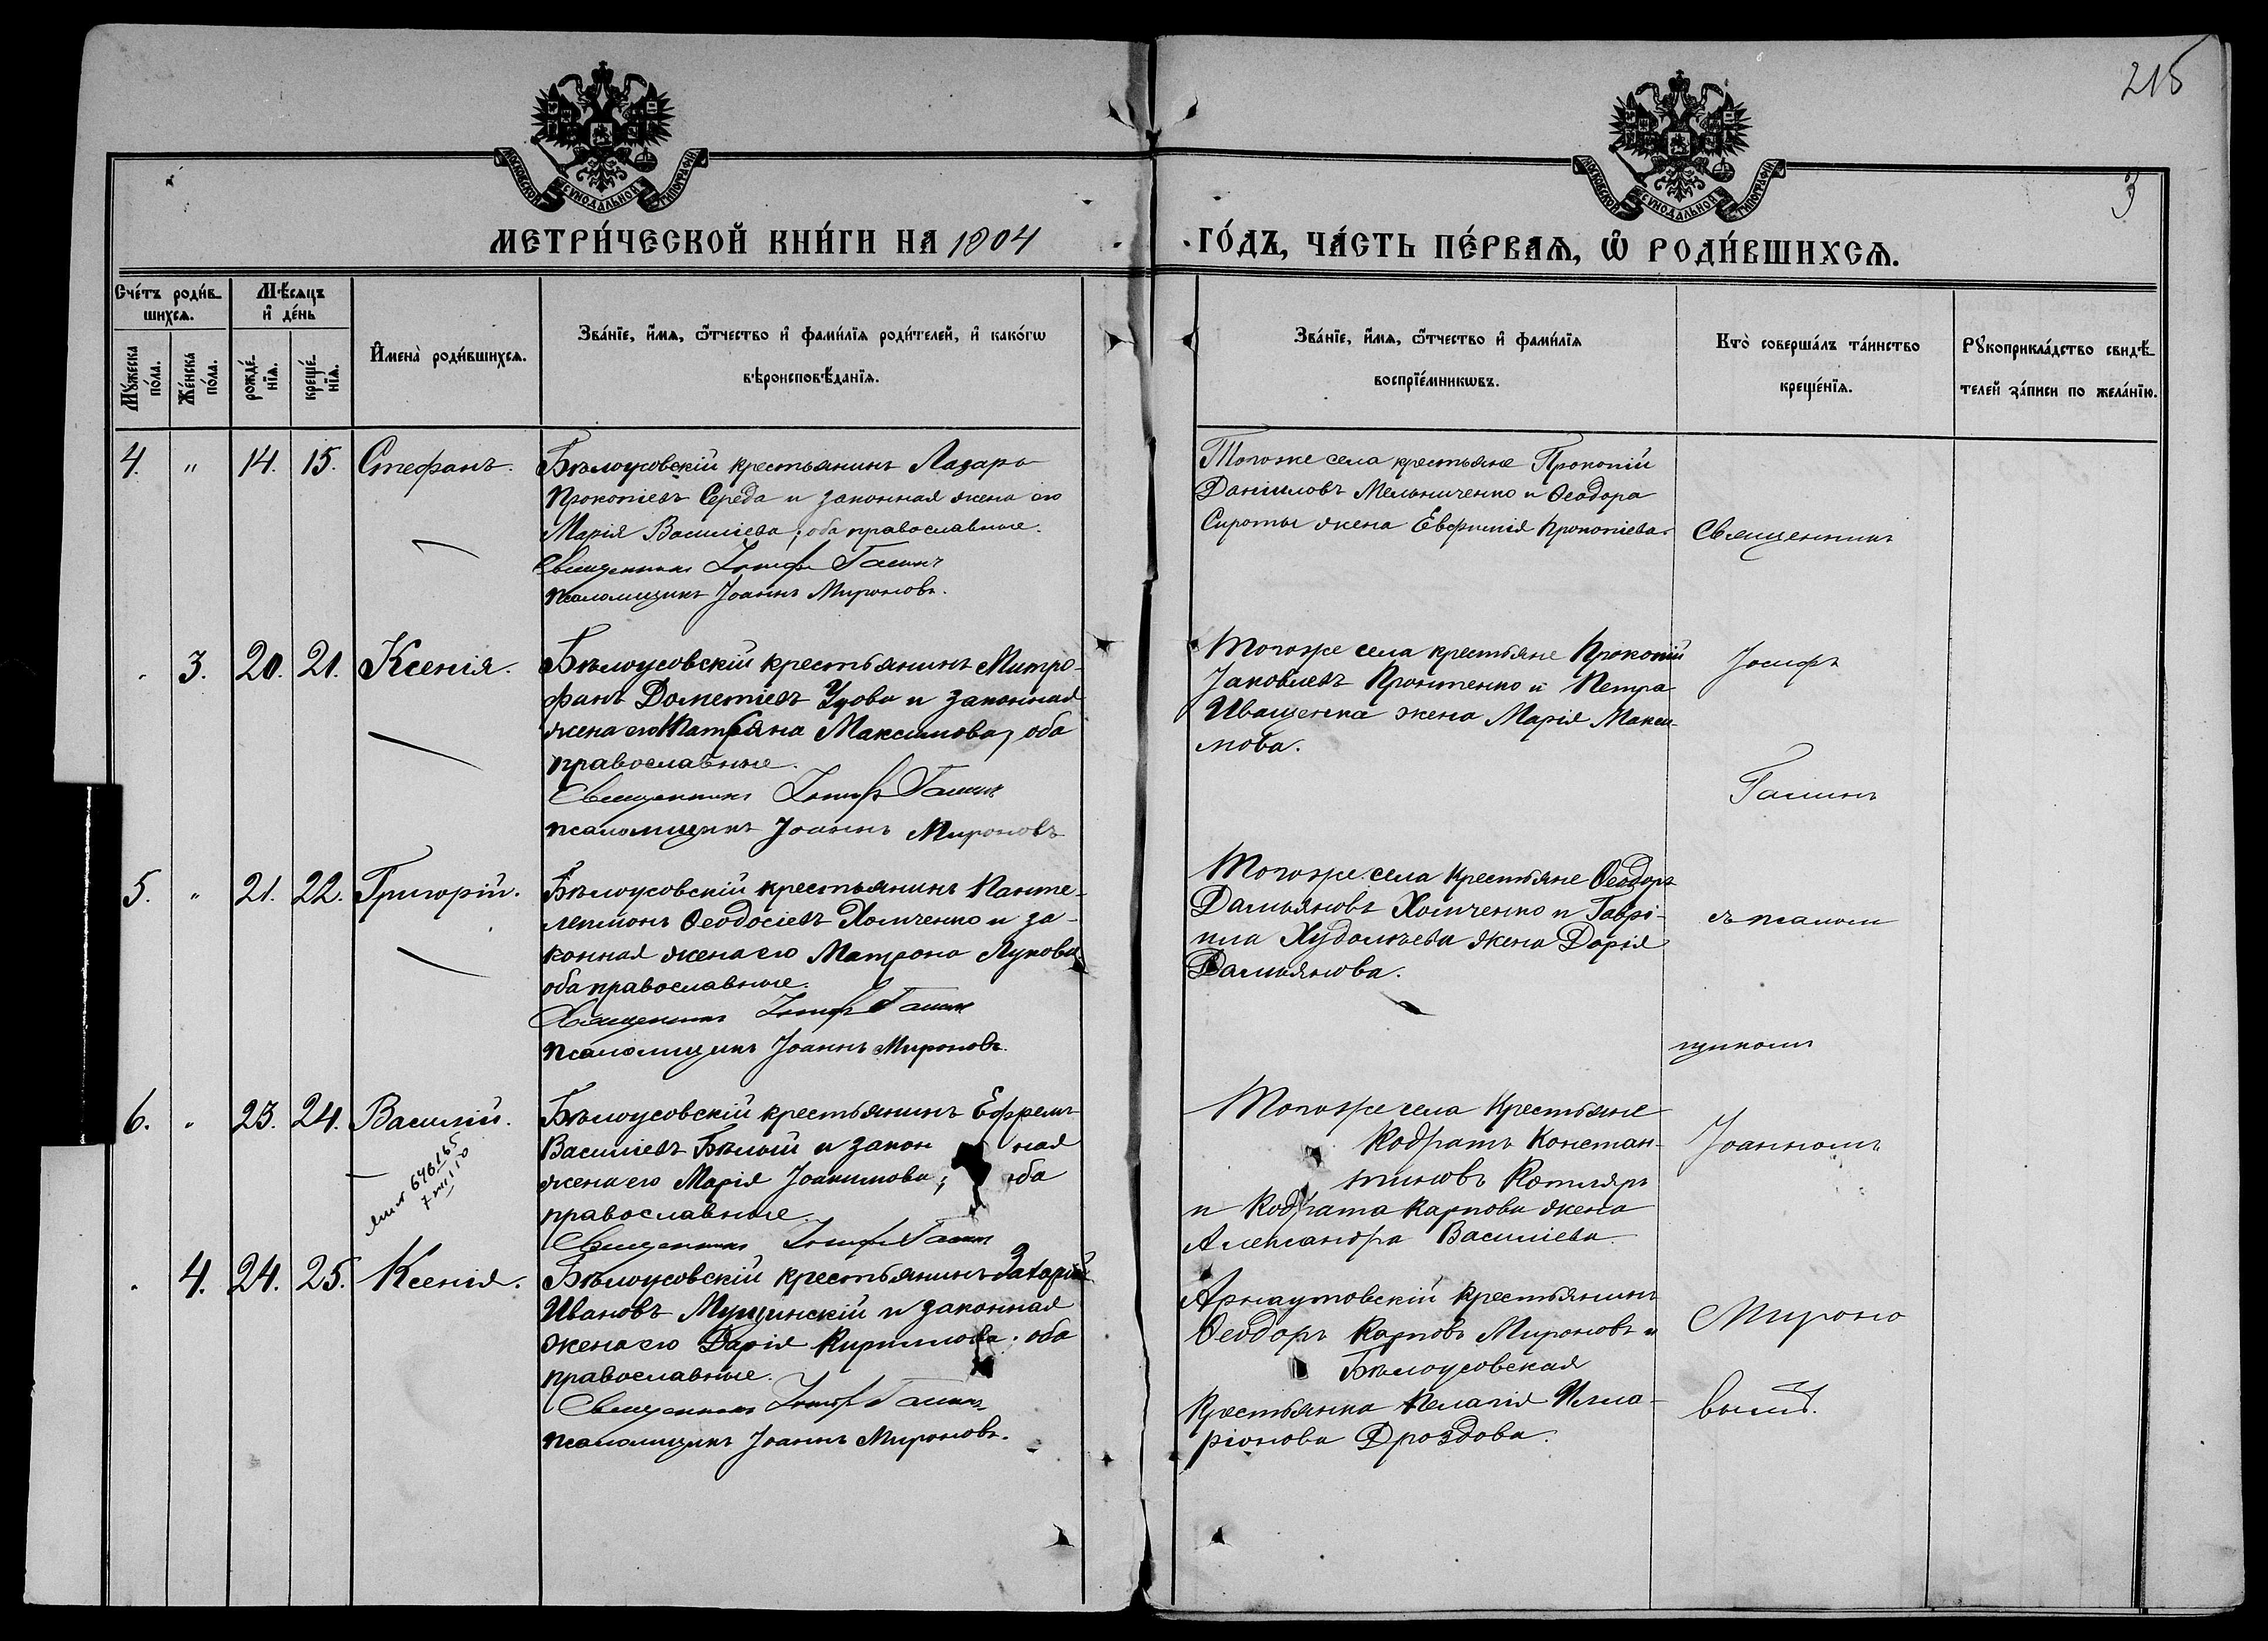 215
3
МОСКОВСКОЙ СѴНОДАЛЬНОЙ ТИПОГРАФІИ
МОСКОВСКОЙ СѴНОДАЛЬНОЙ ТИПОГРАФІИ
МЕТРИ́ЧЕСКОЙ КНИ́ГИ НА 1904 ГО́ДЪ, ЧА́СТЬ ПЕ́РВАѦ, Ѡ҆ РОДИ́ВШИХСѦ.
Сче́тъ роди́в-
шихсѧ.
Мѣ́сѧцъ
и҆ де́нь
Мꙋ́жеска
по́ла.
Же́нска
по́ла.
рожде́-
нїѧ.
креще́-
нїѧ.
И҆мена̀ роди́вшихсѧ.
Зва́нїе, и҆́мѧ, ѻ҆́тчество и҆ фами́лїѧ роди́телей, и҆ како́гѡ
вѣроисповѣ́данїѧ.
Зва́нїе, и҆́мѧ, ѻ҆́тчество и҆ фами́лїѧ
воспрїе́мникѡвъ.
Кто̀ соверша́лъ та́инство
креще́нїѧ.
Рꙋкоприкла́дство свидѣ́-
телей за́писи по жела́нїю.
4. " 14. 15. Стефанъ.
Бѣлоусовскій крестьянинъ Лазарь
Прокопіевъ Середа и законная жена его
Марія Василіева, оба православные.
Священникъ Іосифъ Галинъ
Псаломщикъ Іоаннъ Мироновъ.
Тогоже села крестьяне Прокопій
Даніиловъ Мельниченко и Ѳеодора
Сироты жена Евфимія Прокопіева.
Священникъ
3. 20. 21. Ксенія.
Бѣлоусовскій крестьянинъ Митро-
фанъ Дометіевъ Удова и законная
жена его Татіана Максимова, оба
православные.
Священникъ Іосифъ Галинъ
псаломщикъ Іоаннъ Мироновъ
Тогоже села крестьяне Прокопій
Іаковлевъ Пронтенко и Петра
Иващенка жена Марія Макси-
мова.
Іосифъ
Галинъ
5. " 21. 22. Григорій.
Бѣлоусовскій крестьянинъ Панте-
леимонъ Ѳеодосіевъ Хомченко и за-
конная жена его Матрона Лукова
оба православные.
Священникъ Іосифъ Галинъ
Псаломщикъ Іоаннъ Мироновъ.
Тогоже села крестьяне Ѳеодоръ
Даміановъ Хомченко и Гаврі-
ила Худолѣева жена Дарія
Даміянова.
съ псалом
щикомъ
6. " 23. 24. Василій.
Бѣлоусовскій крестьянинъ Ефремъ
Василіевъ Бѣлый и закон ная
жена его Марія Іоакимова; оба
православные.
Священникъ Іосифъ Галинъ
Тогоже села крестьяне
Кодратъ Констан-
тиновъ Котляръ
и Кодрата Карпова жена
Александра Василіева.
Іоанномъ
4. 24. 25. Ксенія.
Бѣлоусовскій крестьянинъ Захарій
Ивановъ Мущинскій и законная
жена его Дарія Кириллова. оба
православные.
Священникъ Іосифъ Галинъ
псаломщикъ Іоаннъ Мироновъ.
Арнаутовскій крестьянинъ
Ѳеодоръ Карповъ Мироновъ и
Бѣлоусовская
крестьянка Пелагія Илла-
ріонова Дроздова.
Мироно
вымъ.